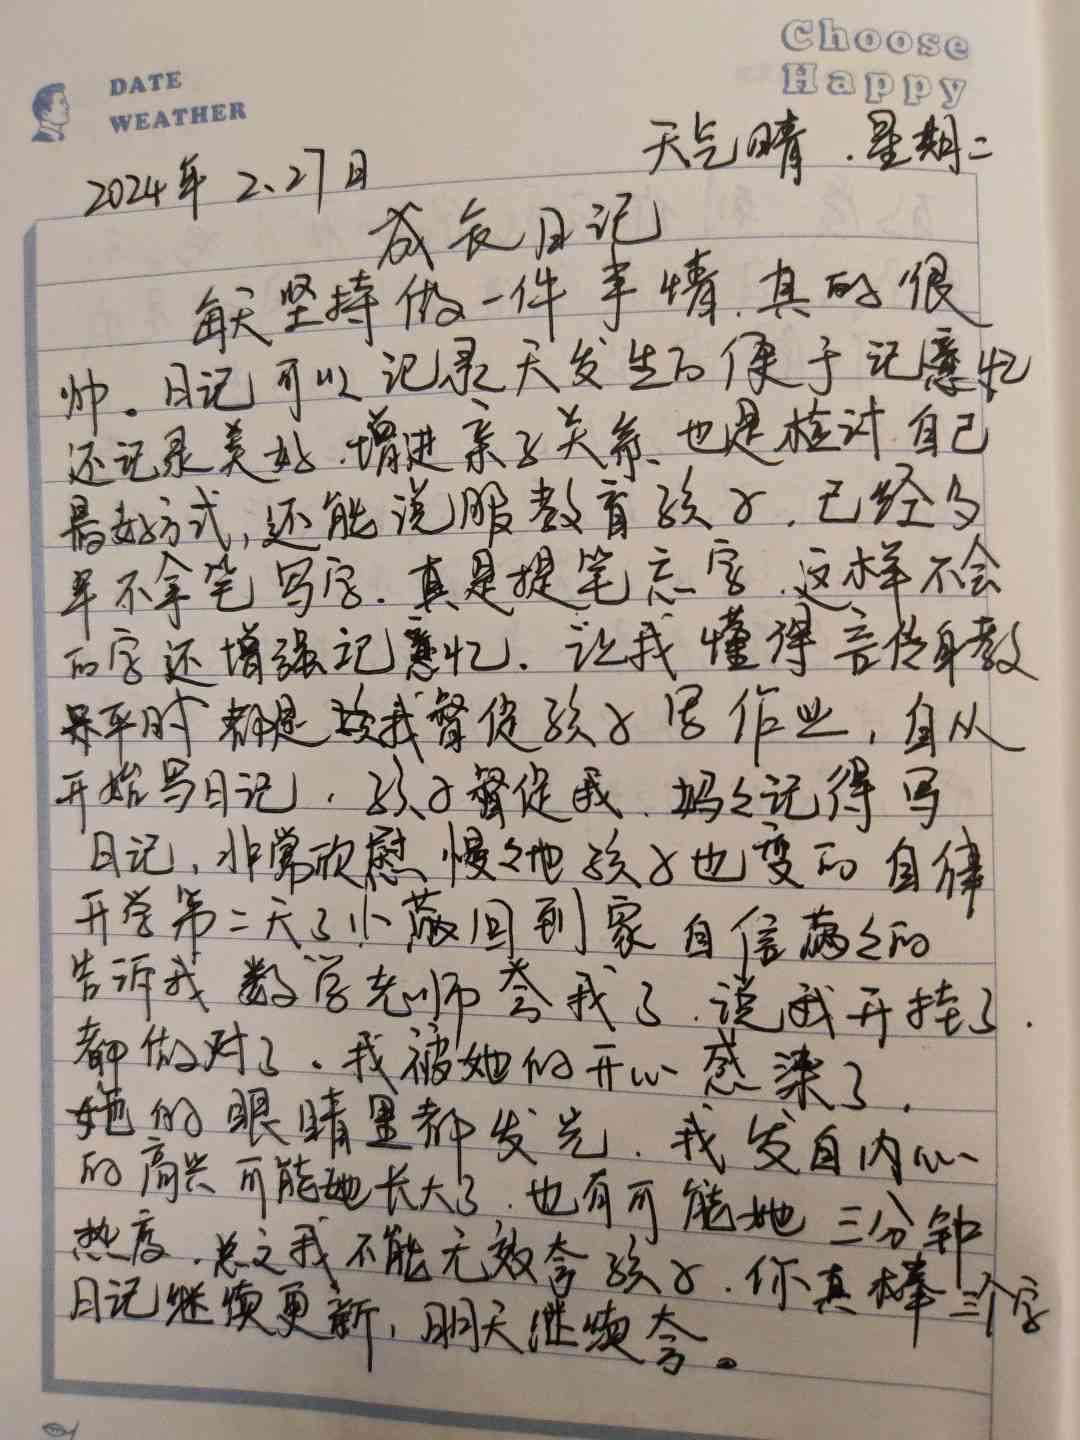 Choose
Happy
DATE
WEATHER
天气晴.星期二
2024年2.27日
成长日记
每天坚持做一件事情.真的很
帅。日记可以记录天发生的便于记意忆
还记录美好.增进亲子关系、也是检讨自己
最好方式,还能说服教育孩子.已经多
年不拿笔写字.真是提笔忘字.这样不会
的字还增强记意忆.让我懂得言传身教
平时都是我督促孩子写作业,自从
开始写日记.孩子督促我.妈々记得写
日记,非常欣慰.慢々地孩子也变的自律
开学第二天了小薇回到家自信满々的
告诉我数学老师夸我了.说我开挂了.
都做对了.我被她的开心感染了.
她的眼睛里都发光.我发自内心
的高兴可能她长大了.也有可能她三分钟
热度.总之我不能无效夸孩子.你真棒三个字
日记继续更新,明天继续夸。